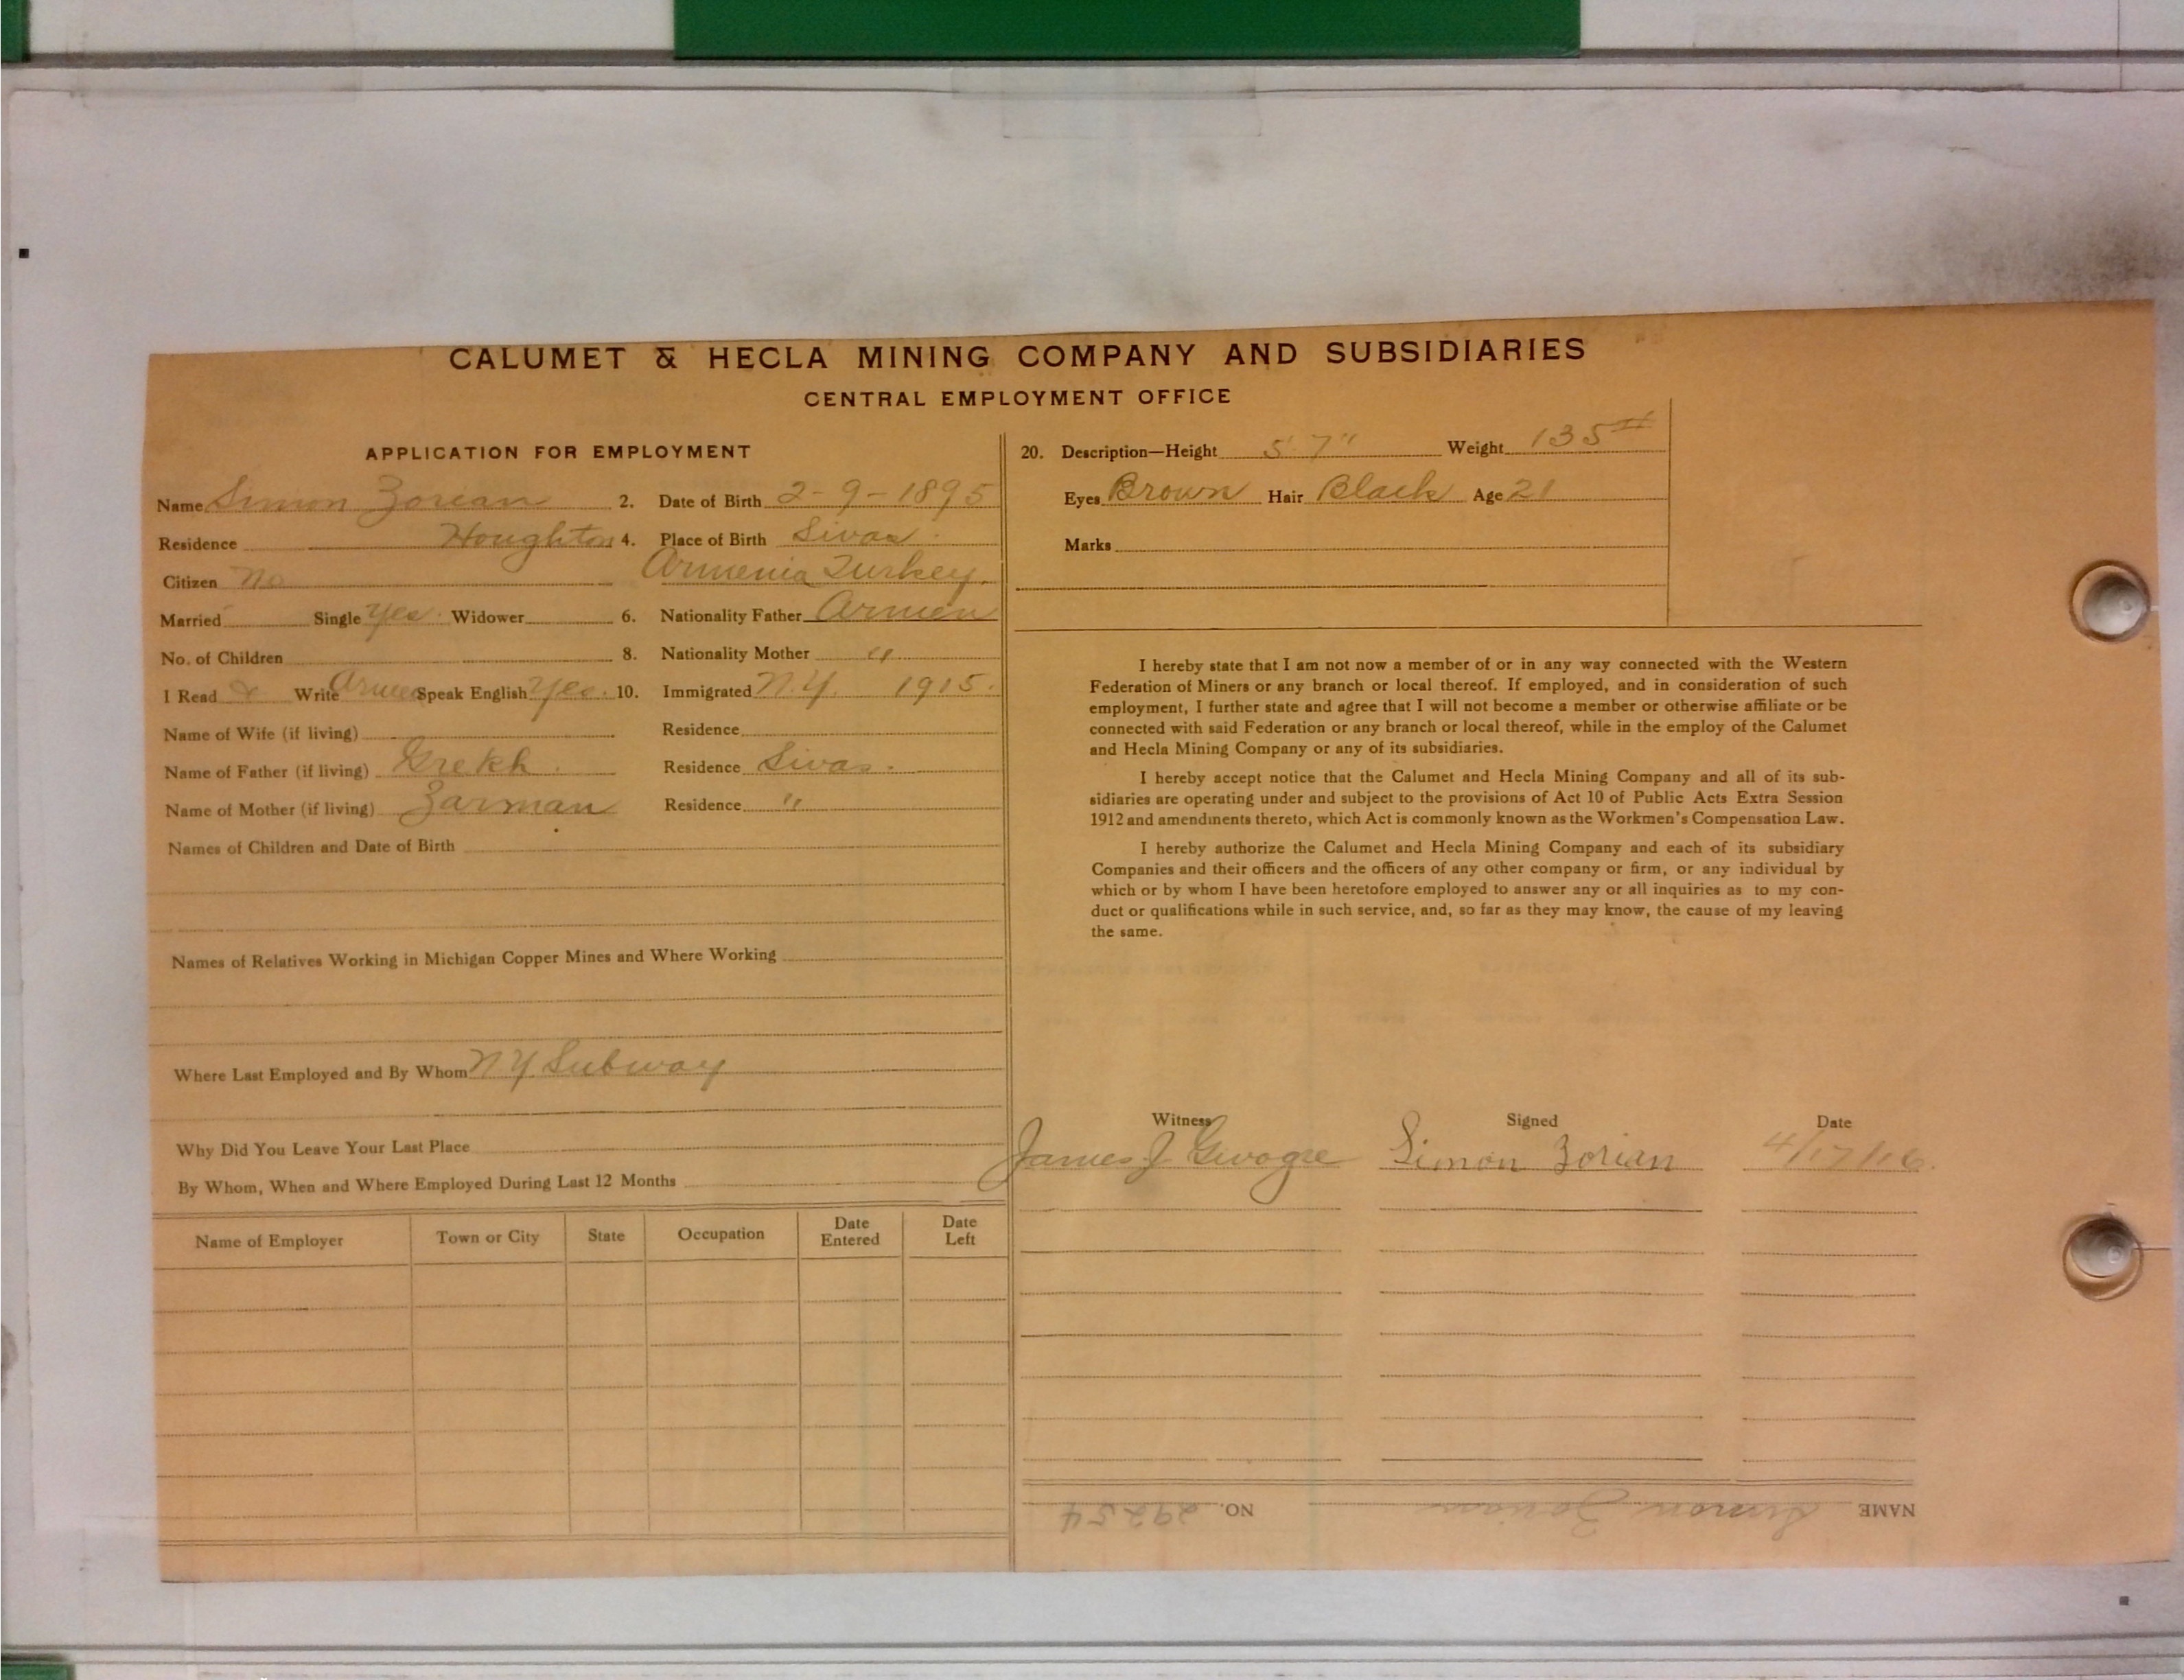 CALUMET & HECLA MINING COMPANY AND SUBSIDIARIES
CENTRAL EMPLOYMENT OFFICE
APPLICATION FOR EMPLOYMENT
Name Simon Zorian 2. Date of Birth 2-9-1895
Residence Houghton 4. Place of Birth Sivas
Citizen No Armenia Turkey.
Married Single Yes Widower 6. Nationality Father Armen
No. of Children 8. Nationality Mother "
I Read & Write Armen Speak English Yes. 10. Immigrated N.Y. 1915.
Name of Wife (if living) Residence
Name of Father (if living) Grekh. Residence Sivas.
Name of Mother (if living) Zarman Residence "
Names of Children and Date of Birth
Names of Relatives Working in Michigan Copper Mines and Where Working
Where Last Employed and By Whom NY Subway
Why Did You Leave Your Last Place
By Whom, When and Where Employed During Last 12 Months
Name of Employer Town or City State Occupation Date Entered Date Left
20. Description—Height 5' 7" Weight 135#
Eyes Brown Hair Black Age 21
Marks
I hereby state that I am not now a member of or in any way connected with the Western
Federation of Miners or any branch or local thereof. If employed, and in consideration of such
employment, I further state and agree that I will not become a member or otherwise affiliate or be
connected with said Federation or any branch or local thereof, while in the employ of the Calumet
and Hecla Mining Company or any of its subsidiaries.
I hereby accept notice that the Calumet and Hecla Mining Company and all of its sub-
sidiaries are operating under and subject to the provisions of Act 10 of Public Acts Extra Session
1912 and amendments thereto, which Act is commonly known as the Workmen's Compensation Law.
I hereby authorize the Calumet and Hecla Mining Company and each of its subsidiary
Companies and their officers and the officers of any other company or firm, or any individual by
which or by whom I have been heretofore employed to answer any or all inquiries as to my con-
duct or qualifications while in such service, and, so far as they may know, the cause of my leaving
the same.
Witness Signed Date
James J. Simon Zorian 4/17/16.
NAME Simon Zorian NO. 29254